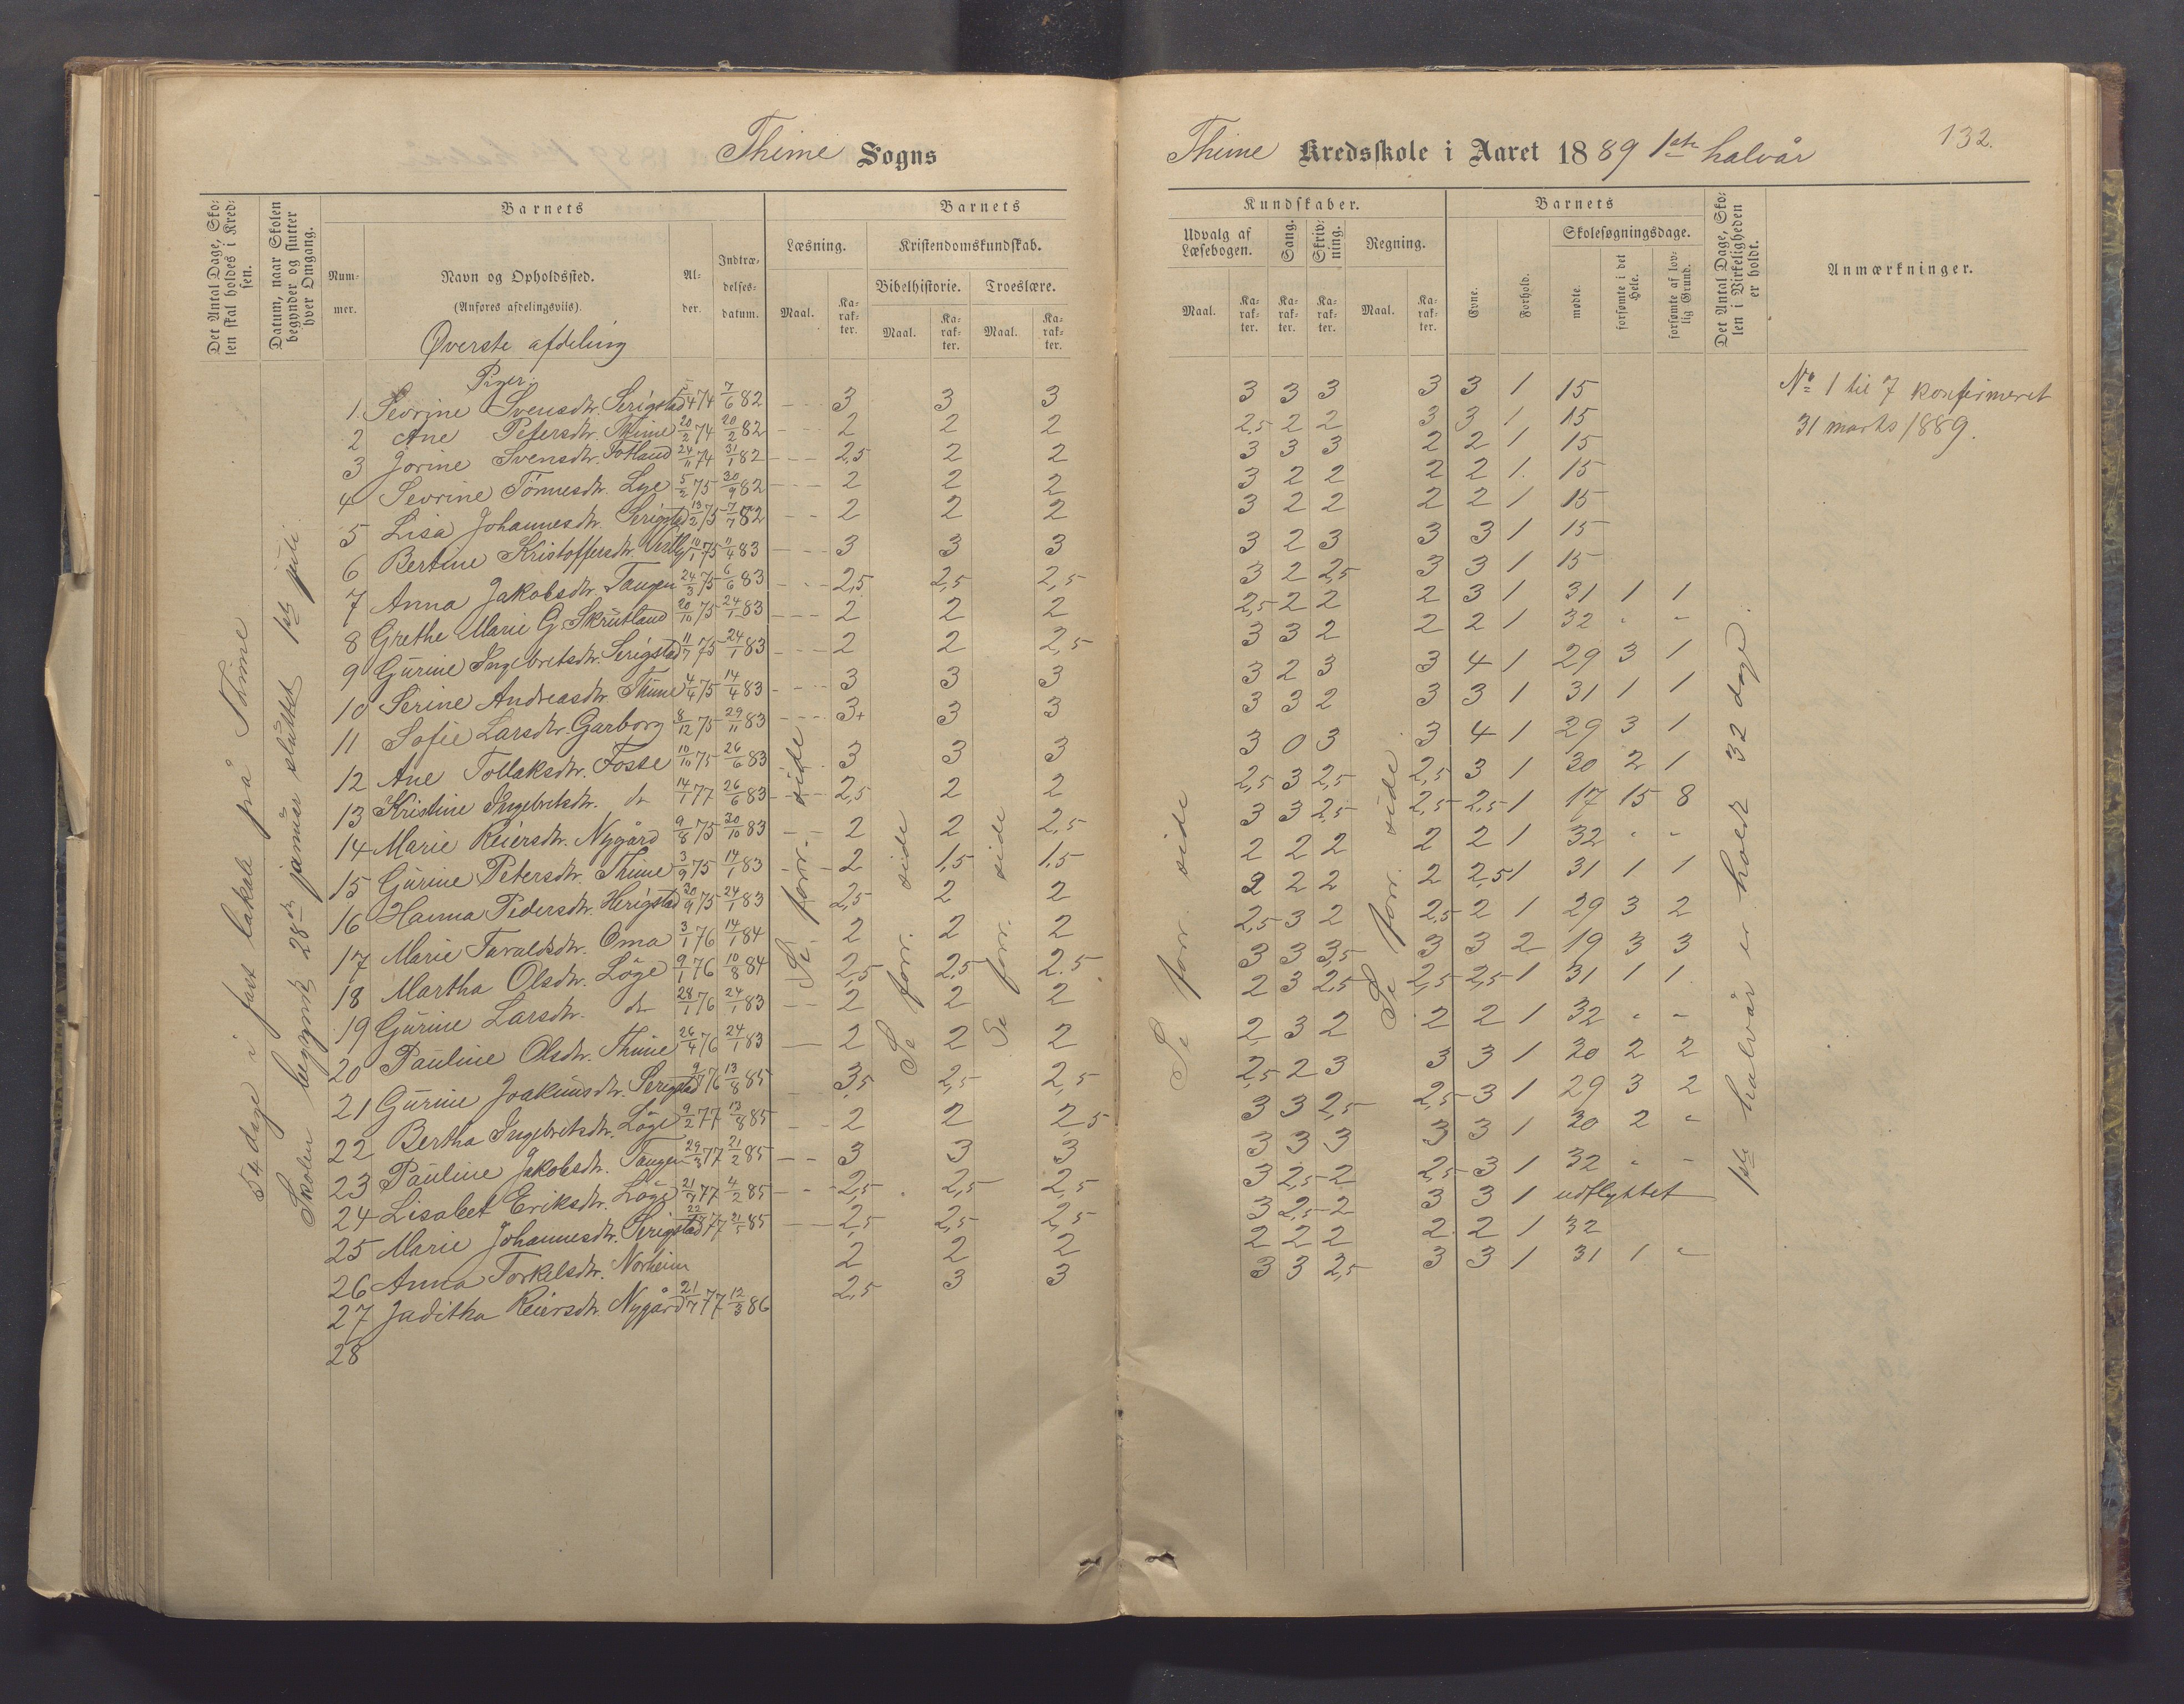 Thime Sogns
Thime Kredsskole i Aaret 1889 1ste halvår
132.
Det Antal Dage, Sko-
len skal holdes i Kred-
sen.
Datum, naar Skolen
begynder og slutter
hver Omgang.
Barnets
Num-
mer.
Navn og Opholdssted.
(Anføres afdelingsviis).
Al-
der.
Indtræ-
delses-
datum.
Barnets
Læsning.
Maal.
Ka-
rak-
ter.
Kristendomskundskab.
Bibelhistorie.
Maal.
Ka-
rak-
ter.
Troeslære.
Maal.
Ka-
rak-
ter.
Kundskaber.
Udvalg af
Læsebogen.
Maal.
Ka-
rak-
ter.
Sang.
Ka-
rak-
ter.
Skriv-
ning.
Ka-
rak-
ter.
Regning.
Maal.
Ka-
rak-
ter.
Barnets
Evne.
Forhold.
Skolesøgningsdage.
mødte.
forsømte i det
Hele.
forsømte af lov-
lig Grund.
Det Antal Dage, Sko-
len i Virkeligheden
er holdt.
Anmærkninger.
Øverste afdeling
Piger.
54 dage i fast lokale på Thime
Skolen begynt 28de januar sluttet 1ste juli
1. Sevrine Svensdtr. Serigstad 74 7/6 82 3 3 3 3 3 3 3 3 1 15
2 Ane Petersdtr. Thime 20/2 74 20/2 82 2 2 2 2,5 2 2 3 3 1 15
3 Jorine Svensdtr. Fotland 24/11 74 31/1 82 2,5 2 2 3 3 3 2 2 1 15
4 Sevrine Tønnesdtr. Lye 5/2 75 30/9 82 2 2 2 3 2 2 2 2 1 15
5 Lisa Johannesdtr. Serigstad 13/2 75 7/7 82 2 2 2 3 2 2 2 2 1 15
6 Bertine Kristoffersdtr. Vestly 10/1 75 11/4 83 3 3 3 3 2 3 3 3 1 15
7 Anna Jakobsdtr. Tangen 24/3 75 6/6 83 2,5 2,5 2,5 3 2 2,5 3 3 1 15
8 Grethe Marie G. Skrutland 20/10 75 24/1 83 2 2 2 2,5 2 2 2 3 1 31 1 1
9 Gurine Ingebretsdtr. Serigstad 11/7 75 24/1 83 2 2 2,5 3 3 2 2 2 1 32 " "
10 Serine Andreasdtr. Thime 4/4 75 14/4 83 3 3 3 3 2 3 3 4 1 29 3 1
11 Sofie Larsdtr. Garborg 8/12 75 29/11 83 3+ 3 3 3 3 2 3 3 1 31 1 1
12 Ane Tollaksdtr. Fosse 10/10 75 26/6 83 3 3 3 3 0 3 3 4 1 29 3 1
13 Kristine Ingebretsdtr. do 14/1 77 26/6 83 2,5 2 2 2,5 3 2,5 2,5 3 1 30 2 1
14 Marie Reiersdtr. Nygård 9/8 75 30/10 83 2 2 2,5 3 3 2,5 2,5 2,5 1 17 15 8
15 Gurine Petersdtr. Thime 3/9 75 14/1 83 2 1,5 1,5 2 2 2 2 2 1 32 " "
16 Hanna Pedersdtr. Herigstad 30/9 75 24/1 83 2,5 2 2 2 2 2 2 2,5 1 31 1 1
17 Marie Taraldsdtr. Oma 3/1 76 14/1 84 2 2 2 2,5 3 2 2,5 2 1 29 3 2
18 Martha Olsdtr. Löge 9/1 76 10/8 84 2,5 2,5 2.5 3 3 3,5 3 3 2 19 3 3
19 Gurine Larsdtr. do 28/1 76 24/1 83 2 2 2 2 3 2,5 2,5 2,5 1 31 1 1
20 Pauline Olsdtr. Thime 26/4 76 24/1 83 2 2 2 2 3 2 2 2 1 32 " "
21 Gurine Joakimsdtr. Serigstad 76 13/8 85 3,5 2,5 2,5 2,5 2 3 3 3 1 30 2 2
22 Bertha Ingebretsdtr. Löge 9/2 77 13/8 85 2 2 2,5 3 3 2,5 2,5 3 1 29 3 2
23 Pauline Jakobsdtr. Tangen 29/3 77 21/2 85 3 3 3 3 3 3 3 3 1 30 2 "
24 Lisabet Eriksdtr. Löge 21/7 77 4/2 85 2,5 2,5 2,5 3 2,5 2 2,5 3 1 32 " "
25 Marie Johannesdtr. Serigstad 77 21/5 85 2,5 2,5 2,5 3 2,5 2 3 3 1 udflyttet
26 Anna Torkelsdtr. Norheim 2 2 2 2 2 2 2 2 1 32
27 Juditha Reiersdtr. Nygård 21/7 77 12/3 86 2,5 3 3 3 3 2,5 3 3 1 31 1 "
28
Se forr. side
Se forr. side
Se forr. side
Se forr. side
Se forr. side.
1ste halvår er holdt 32 dage.
No 1 til 7 konfirmeret
31 marts 1889.